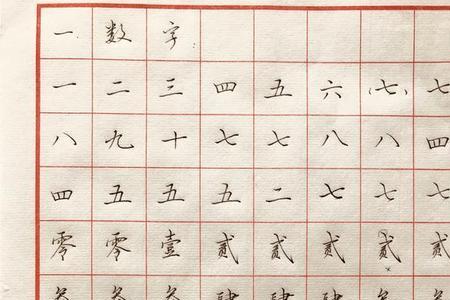 一数字
一二三四五六七七
八九十七七八八四
四五五五二七七七
零零壹贰贰贰贰贰